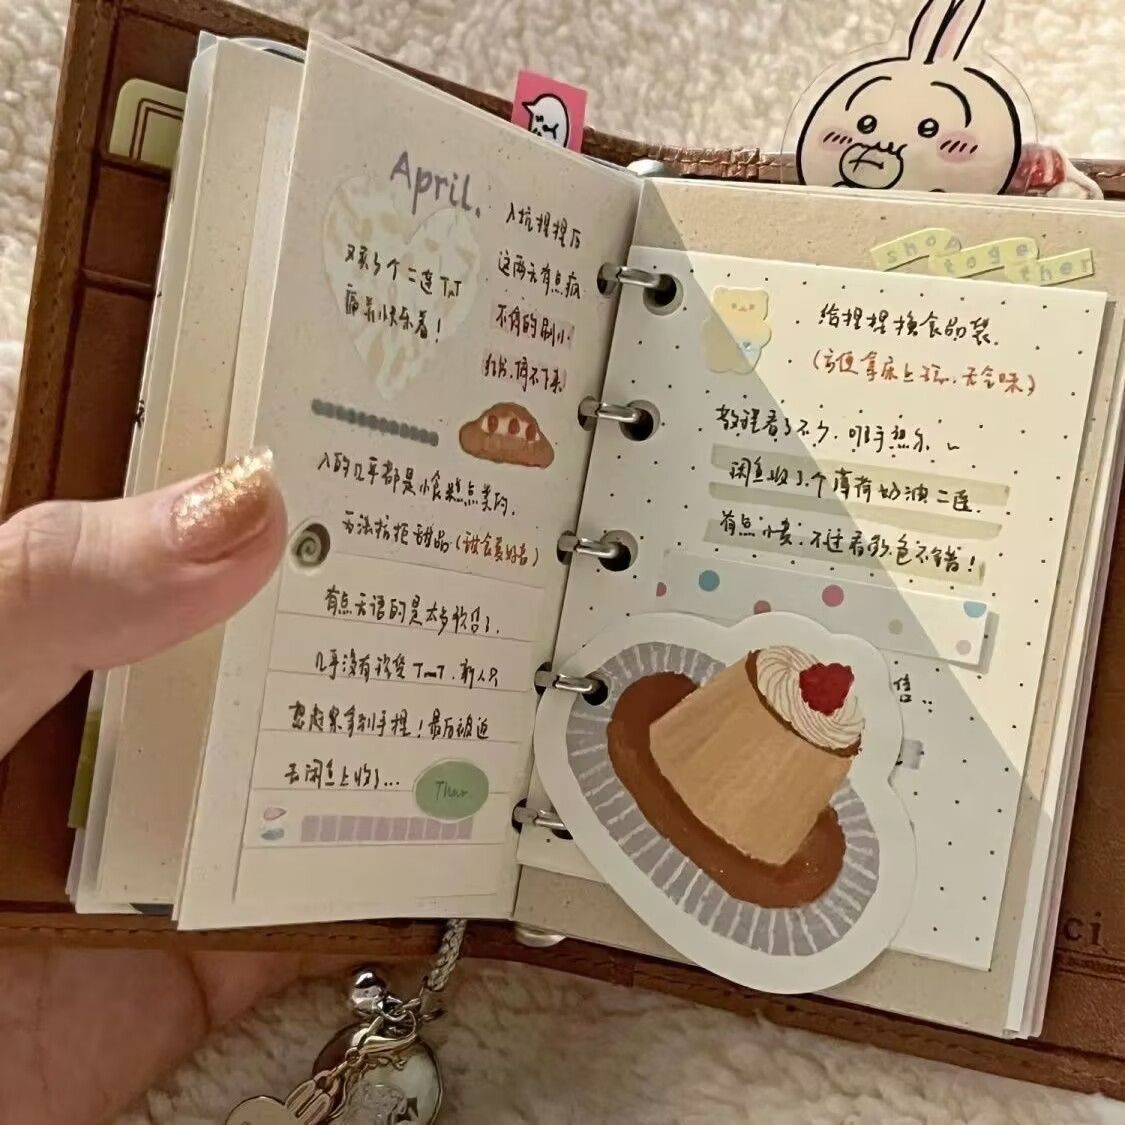 April.
又买了个二连TmT
痛并快乐着！
入坑捏捏后
这两天有点疯
不停的刷小
红书，停不下来
入的几乎都是小食糕点类的，
无法抗拒甜品（甜食爱好者）
有点无语的是太多软包了，
几乎没有软受TmT，新人只
想赶紧拿到手捏！最后被迫
去闲鱼上收了...
Thur.
shop
toge
ther
给捏捏换食品袋，
（方便拿床上玩，无气味）
教程看了不少，
闲鱼收了个薄荷奶油二连，
有点小贵，不过看颜色不错！
ci